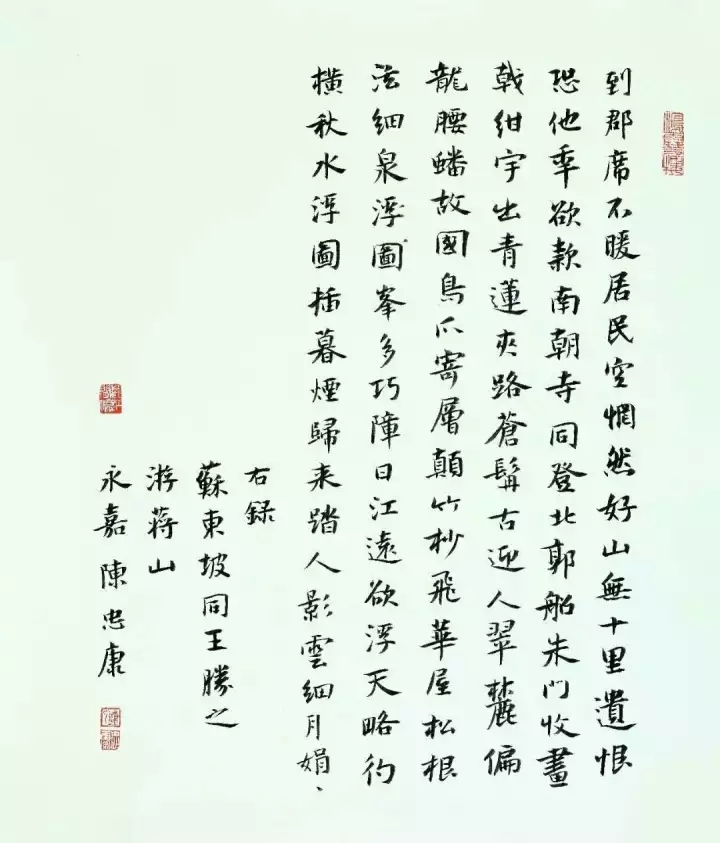 到郡席不暖居民空惘然好山無十里遺恨
恐他年欲款南朝寺同登北郭船朱門收畫
戟紺宇出青蓮夾路蒼髯古迎人翠麓偏
龍腰蟠故國鳥爪寄層顛竹杪飛華屋松根
泫細泉浮圖峯多巧障日江遠欲浮天略彴
橫秋水浮圖插暮煙歸来踏人影雲細月娟、
右録
蘇東坡同王勝之
游蔣山
永嘉陳忠康